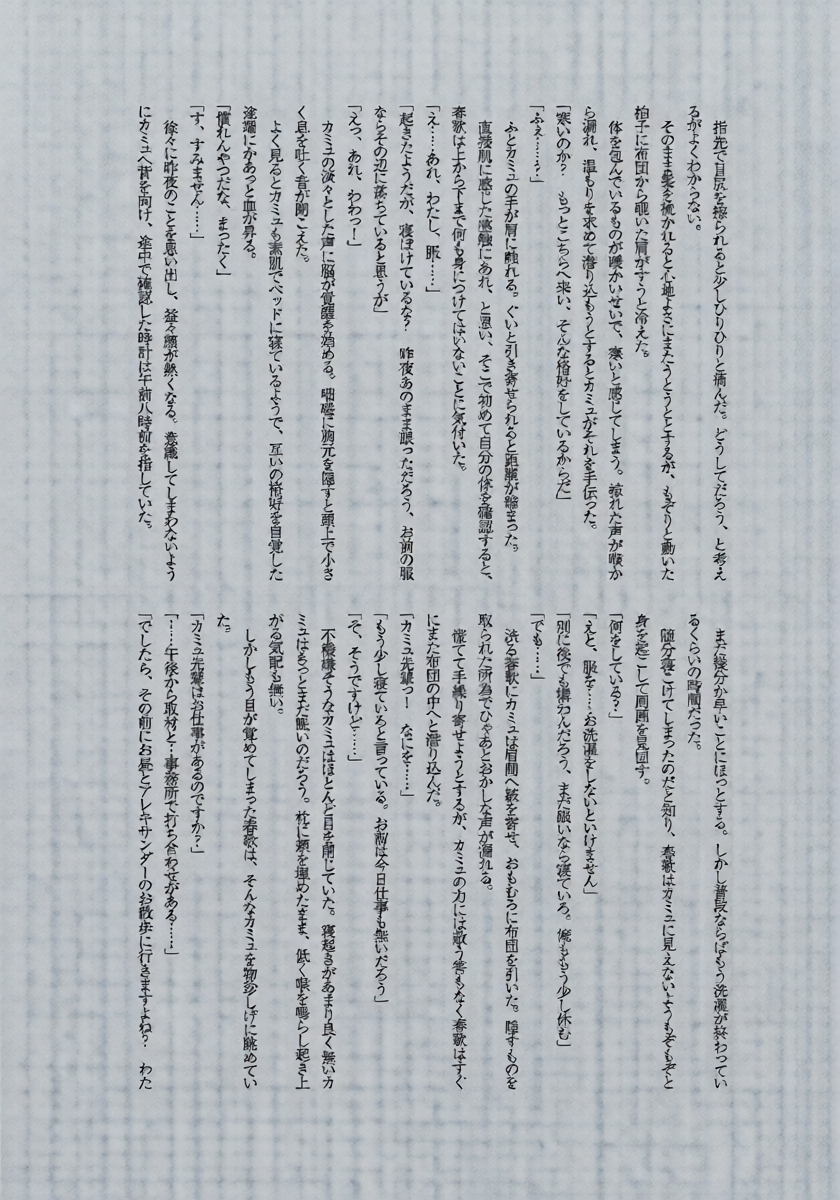 指先で目尻を擦られると少しひりひりと痛んだ。どうしてだろう、と考え
るがよくわからない。
　そのまま髪を梳かれると心地よさにまたうとうととするが、もぞりと動いた
拍子に布団から覗いた肩がすうと冷えた。
　体を包んでいるものが暖かいせいで、寒いと感じてしまう。掠れた声が喉か
ら漏れ、温もりを求めて潜り込もうとするとカミュがそれを手伝った。
「寒いのか？　もっとこちらへ来い、そんな格好をしているからだ」
「ふぇ……？」
　ふとカミュの手が肩に触れる。ぐいと引き寄せられると距離が縮まった。
　直接肌に感じた感触にあれ、と思い、そこで初めて自分の体を確認すると、
春歌は上から下まで何も身につけてはいないことに気付いた。
「え……あれ、わたし、服……」
「起きたようだが、寝ぼけているな？　昨夜あのまま眠っただろう、お前の服
ならその辺に落ちていると思うが」
「えっ、あれ、わわっ！」
　カミュの淡々とした声に脳が覚醒を始める。咄嗟に胸元を隠すと頭上で小さ
く息を吐く音が聞こえた。
　よく見るとカミュも素肌でベッドに寝ているようで、互いの格好を自覚した
途端にかあっと血が昇る。
「慣れんやつだな、まったく」
「す、すみません……」
　徐々に昨夜のことを思い出し、益々顔が熱くなる。意識してしまわないよう
にカミュへ背を向け、途中で確認した時計は午前八時前を指していた。
　まだ幾分か早いことにほっとする。しかし普段ならばもう洗濯が終わってい
るくらいの時間だった。
　随分寝こけてしまったのだと知り、春歌はカミュに見えないようもぞもぞと
身を起こして周囲を見回す。
「何をしている？」
「えと、服を……お洗濯をしないといけません」
「別に後でも構わんだろう、まだ眠いなら寝ていろ。俺ももう少し休む」
「でも……」
　渋る春歌にカミュは眉間へ皺を寄せ、おもむろに布団を引いた。隠すものを
取られた所為でひゃあとおかしな声が漏れる。
　慌てて手繰り寄せようとするが、カミュの力には敵う筈もなく春歌はすぐ
にまた布団の中へと潜り込んだ。
「カミュ先輩っ！　なにを……」
「もう少し寝ていろと言っている。お前は今日仕事も無いだろう」
「そ、そうですけど……」
　不機嫌そうなカミュはほとんど目を閉じていた。寝起きがあまり良く無いカ
ミュはきっとまだ眠いのだろう。枕に頬を埋めたまま、低く喉を鳴らし起き上
がる気配も無い。
　しかしもう目が覚めてしまった春歌は、そんなカミュを物珍しげに眺めてい
た。
「カミュ先輩はお仕事があるのですか？」
「……午後から取材と…事務所で打ち合わせがある……」
「でしたら、その前にお昼とアレキサンダーのお散歩に行きますよね？　わた